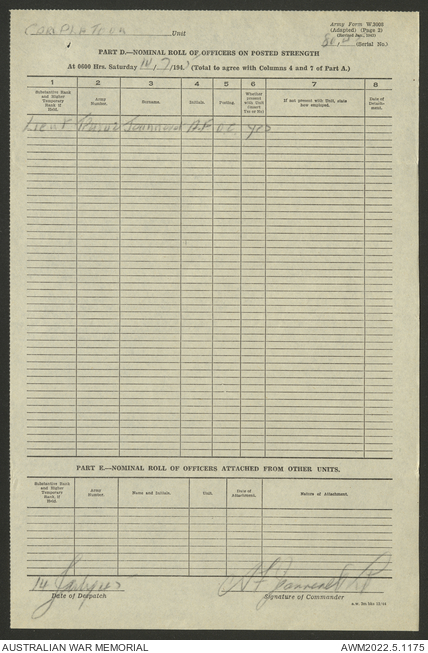 Unit
Army Form W.3008
(Adapted) (Page 2)
(Serial No.)
PART D.—NOMINAL ROLL OF OFFICERS ON POSTED STRENGTH
At 0600 Hrs. Saturday (Total to agree with Columns 4 and 7 of Part A.)
1 2 3 4 5 6 7 8
Substantive Rank and Higher Temporary Rank if Held.
Army Number.
Surname.
Initials.
Posting.
Whether present with Unit (Insert Yes or No)
If not present with Unit, state how employed.
Date of Detachment.
Lieut A.F O.C yes
PART E.—NOMINAL ROLL OF OFFICERS ATTACHED FROM OTHER UNITS.
Substantive Rank and Higher Temporary Rank if Held.
Army Number.
Name and Initials.
Unit.
Date of Attachment.
Nature of Attachment.
14
Date of Despatch
Signature of Commander
AUSTRALIAN WAR MEMORIAL
AWM2022.5.1175